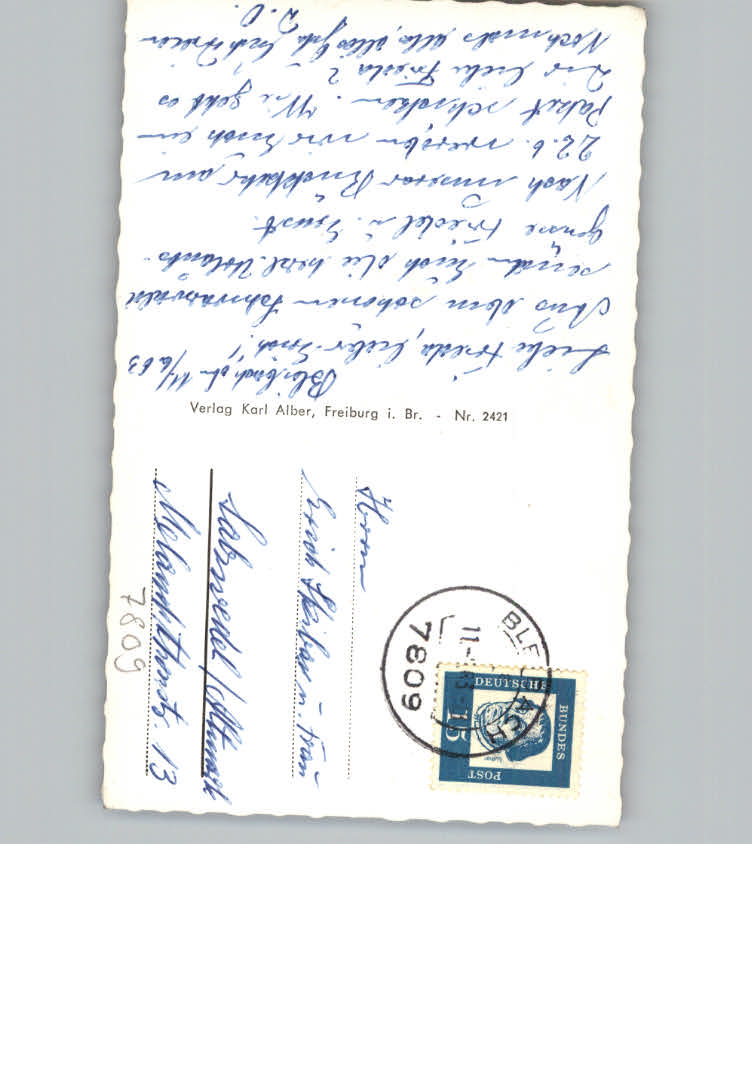 Bleibach, d. 11/6 63
Liebe Frieda, lieber Erich!
Aus dem schönen Schwarzwald
senden Euch die herzl. Urlaubs-
grüsse Friedel u. Ernst.
Nach unserer Rückkehr am
22.6. werden wir Euch ein
Paket schicken. Wie geht es
Dir liebe Frieda? –
Nochmals alles, alles Gute Euch
D.O.
Verlag Karl Alber, Freiburg i. Br. - Nr. 2421
Herrn
Erich u. Frau
Salzwedel/Altmark
Melanchthonstr. 13
7809
7809
BLEI ACH
11.
DEUTSCHE
BUNDES
POST
15